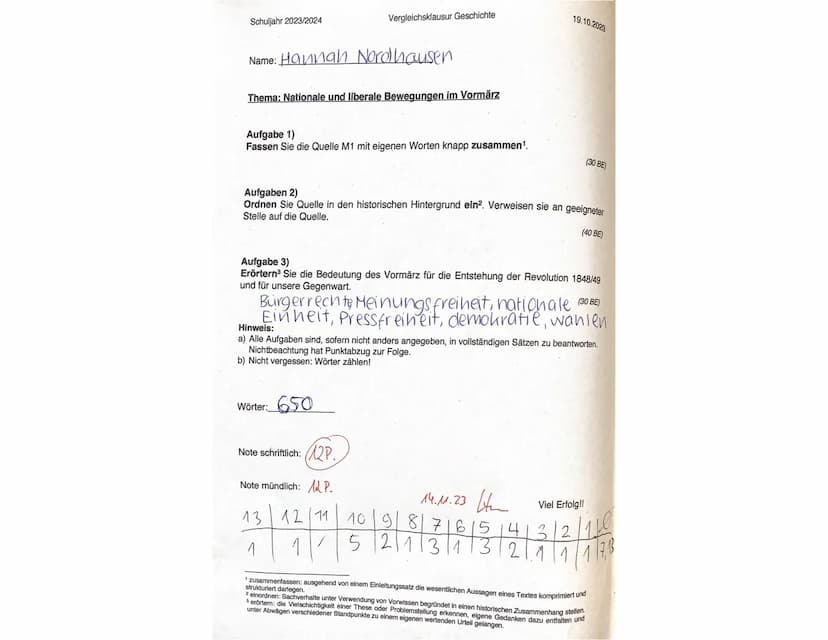 Schuljahr 2023/2024 Vergleichsklausur Geschichte 19.10.2023
Name: Hannah Nordhausen
Thema: Nationale und liberale Bewegungen im Vormärz
Aufgabe 1)
Fassen Sie die Quelle M1 mit eigenen Worten knapp zusammen¹.
(30 BE)
Aufgaben 2)
Ordnen Sie Quelle in den historischen Hintergrund ein². Verweisen sie an geeigneter
Stelle auf die Quelle.
(40 BE)
Aufgabe 3)
Erörtern³ Sie die Bedeutung des Vormärz für die Entstehung der Revolution 1848/49
und für unsere Gegenwart.
(30 BE)
Bürgerrechte Meinungsfreiheit, nationale
Einheit, Pressfreiheit, demokratie, wahlen
Hinweis:
a) Alle Aufgaben sind, sofern nicht anders angegeben, in vollständigen Sätzen zu beantworten.
Nichtbeachtung hat Punktabzug zur Folge.
b) Nicht vergessen: Wörter zählen!
Wörter: 650
Note schriftlich: 12P.
Note mündlich: 12 P.
14.11.23
Viel Erfolg!!
13 12 11 10 9 8 7 6 5 4 3 2 1
1 1 / 5 2 1 3 1 3 2 1 1 1
¹ zusammenfassen: ausgehend von einem Einleitungssatz die wesentlichen Aussagen eines Textes komprimiert und
strukturiert darlegen.
² einordnen: Sachverhalte unter Verwendung von Vorwissen begründet in einen historischen Zusammenhang stellen.
³ erörtern: die Vielschichtigkeit einer These oder Problemstellung erkennen, eigene Gedanken dazu entfalten und
unter Abwägen verschiedener Standpunkte zu einem eigenen wertenden Urteil gelangen.